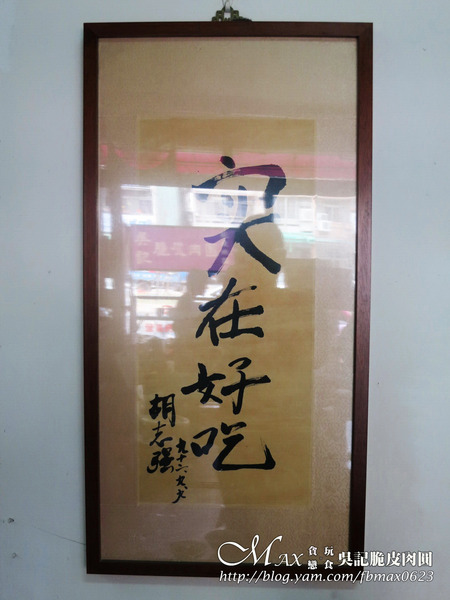 实在好吃
胡志强
MAX 貪戀玩食 吳記脆皮肉圓
http://blog.yam.com/fbmax0623